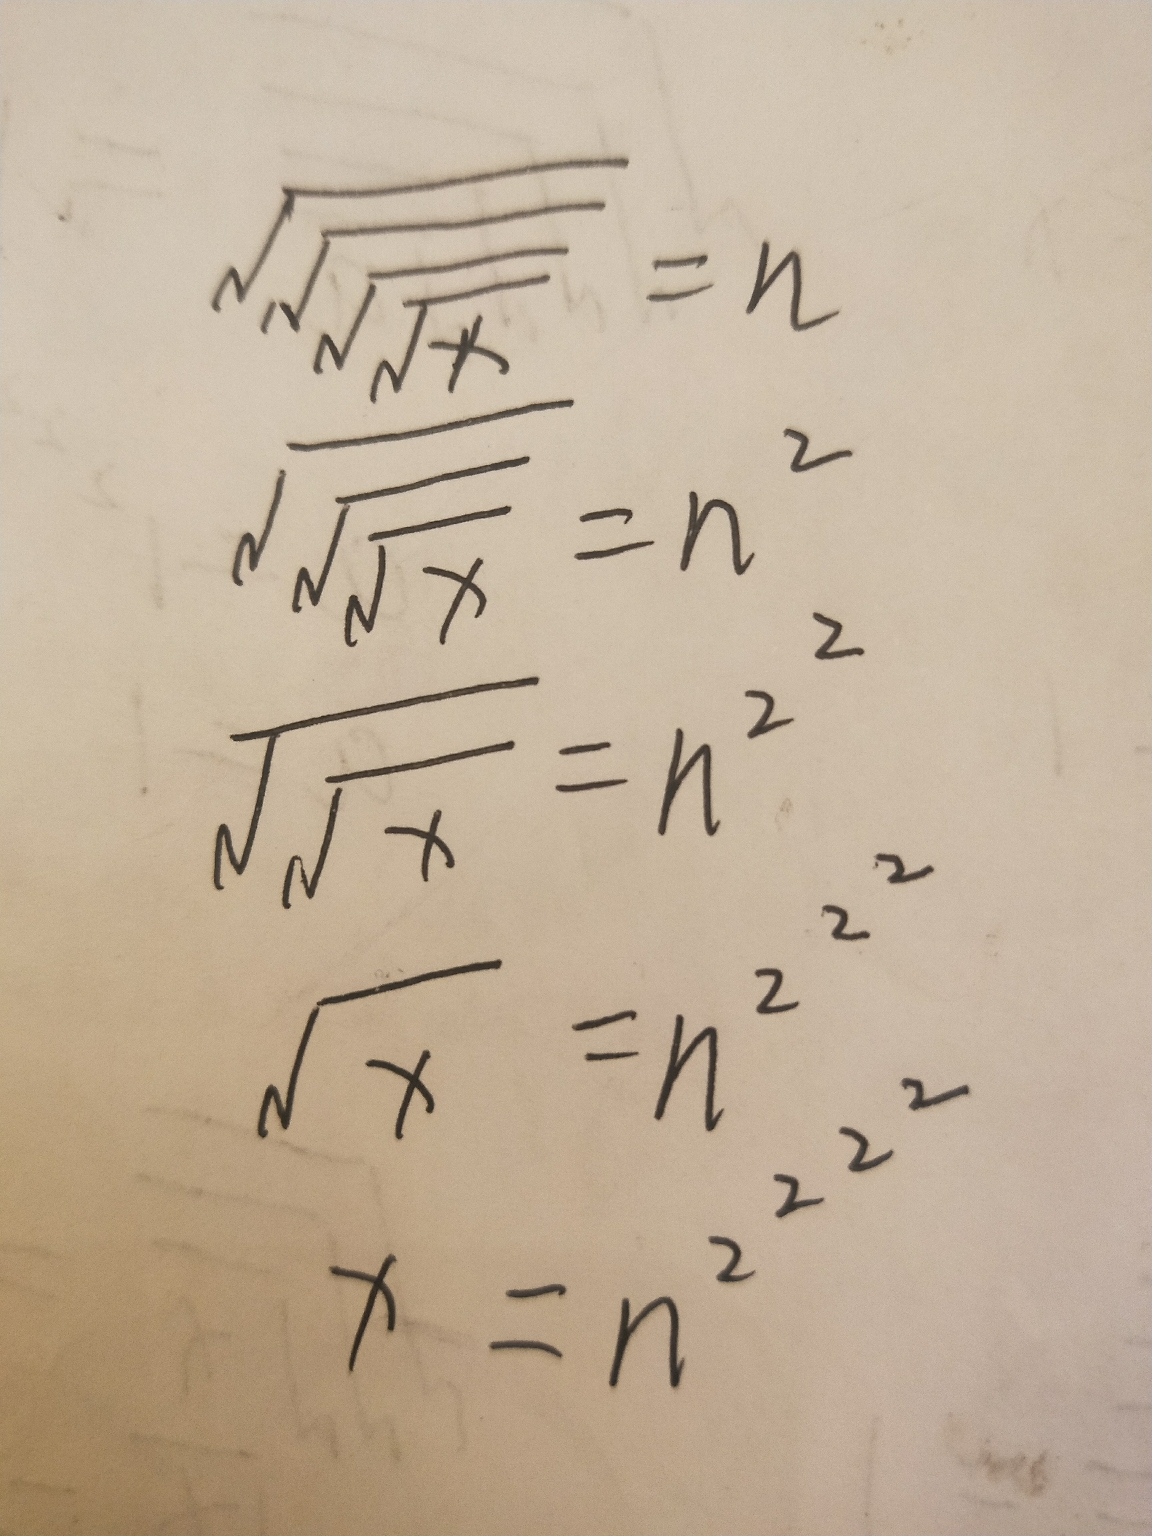 √√√√x = n
√√√x = n²
√√x = n^2^2
√x = n^2^2^2
x = n^2^2^2^2